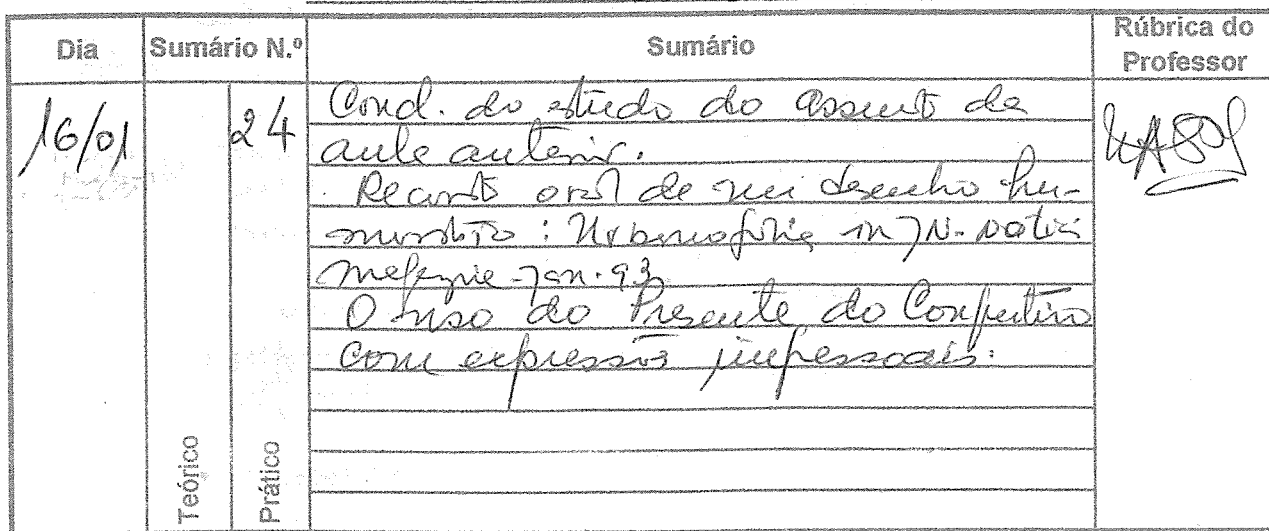 Dia
Sumário N.º
Sumário
Rúbrica do
Professor
16/01
24
Concl. do estudo do assunto da
aula anterior.
Reconto oral de um desenho hu-
morístico : in JN - notícias
magazine - Jan. 93
O uso do Presente do Conjuntivo
com expressões impessoais.
Teórico
Prático